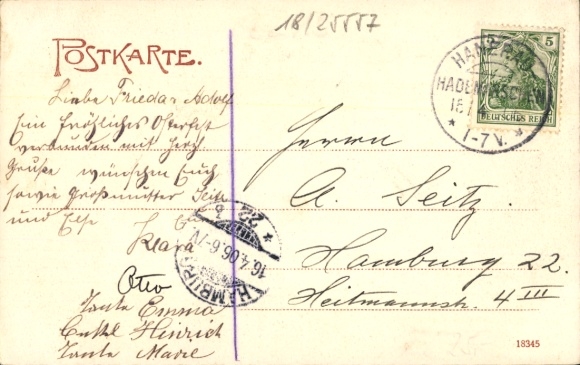 18/25557
POSTKARTE.
Liebe Frieda u. Adolf
Ein fröhliches Osterfest
verbunden mit herzl
Grüße wünschen Euch
sowie Großmutter Seitz
und Else
Klara
Otto
Tante Emma
Onkel Heinrich
Tante Marie
Herrn
A. Seitz
Hamburg 22.
Heitmannstr. 4 III
5
DEUTSCHES REICH
1-7V.
HAMBURG
16.4.06.6-7V
22
18345